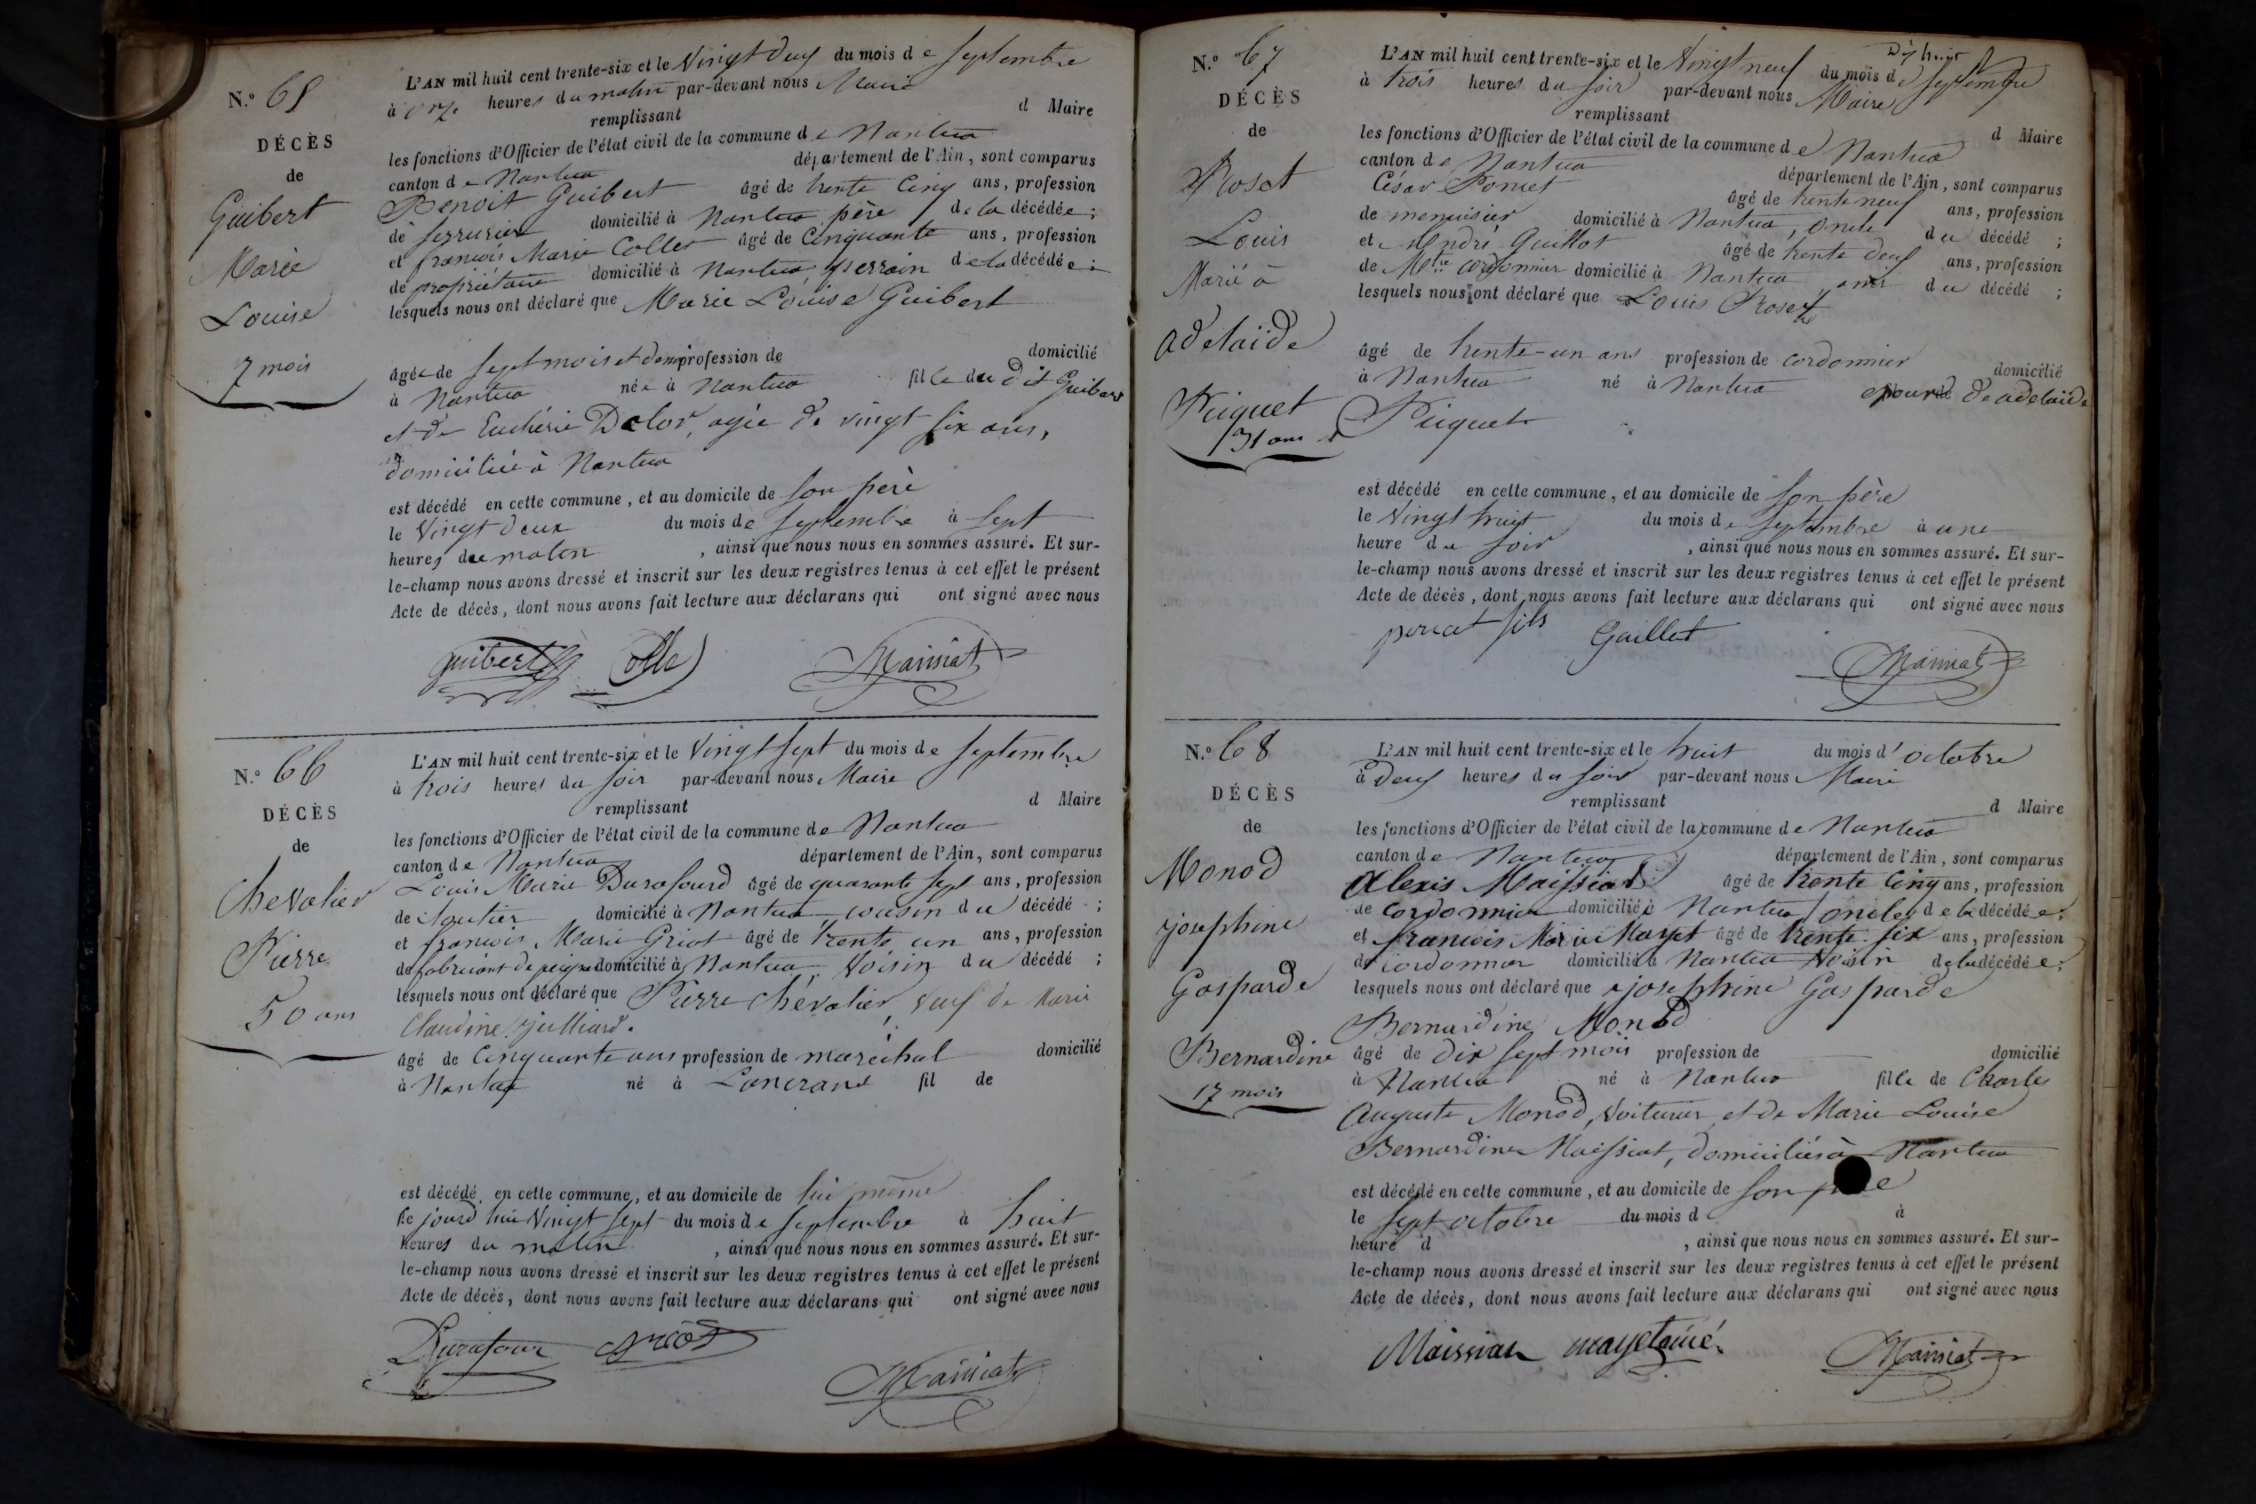 N.º 65
DÉCÈS
de
Guibert
Marie
Louise
7 mois
L'AN mil huit cent trente-six et le Vingt deux du mois de septembre
à onze heures du matin par-devant nous Maire
remplissant d Maire
les fonctions d'Officier de l'état civil de la commune de Nantua
canton de Nantua département de l'Ain, sont comparus
Benoit Guibert âgé de trente cinq ans, profession
de serrurier domicilié à Nantua père de la décédée ;
et françois Marie Collet âgé de Cinquante ans, profession
de propriétaire domicilié à Nantua de la décédée ;
lesquels nous ont déclaré que Marie Louise Guibert
âgée de sept mois et demi profession de domicilié
à Nantua née à Nantua fille du dit Guibert
et de Euchérie Dolor, agée de vingt six ans,
domiciliée à Nantua
est décédé en cette commune, et au domicile de son père
le Vingt deux du mois de septembre à sept
heures du matin , ainsi que nous nous en sommes assuré. Et sur-
le-champ nous avons dressé et inscrit sur les deux registres tenus à cet effet le présent
Acte de décès, dont nous avons fait lecture aux déclarans qui ont signé avec nous
guibert Collet Maissiat
N.º 66
DÉCÈS
de
Chevalier
Pierre
50 ans
L'AN mil huit cent trente-six et le Vingt sept du mois de septembre
à trois heures du soir par-devant nous Maire
remplissant d Maire
les fonctions d'Officier de l'état civil de la commune de Nantua
canton de Nantua département de l'Ain, sont comparus
Louis Marie Durafourd âgé de quarante sept ans, profession
de cloutier domicilié à Nantua cousin du décédé ;
et françois Marie Griot âgé de trente un ans, profession
de fabricant de peignes domicilié à Nantua, Voisin du décédé ;
lesquels nous ont déclaré que Pierre Chevalier, veuf de Marie
Claudine Julliard.
âgé de Cinquante ans profession de maréchal domicilié
à Nantua né à Lancrans fil de
est décédé en cette commune, et au domicile de lui même
le jourd'hui Vingt sept du mois de septembre à huit
heures du matin , ainsi que nous nous en sommes assuré. Et sur-
le-champ nous avons dressé et inscrit sur les deux registres tenus à cet effet le présent
Acte de décès, dont nous avons fait lecture aux déclarans qui ont signé avec nous
Durafour Griot Maissiat
N.º 67
DÉCÈS
de
Roset
Louis
Marié à
adelaïde
Puquet
31 ans
L'AN mil huit cent trente-six et le Vingt neuf du mois de septembre
à trois heures du soir par-devant nous Maire
remplissant d Maire
les fonctions d'Officier de l'état civil de la commune de Nantua
canton de Nantua département de l'Ain, sont comparus
César Poncet âgé de trente neuf ans, profession
de menuisier domicilié à Nantua, oncle du décédé ;
et André Guillot âgé de trente deux ans, profession
de Mtre cordonnier domicilié à Nantua, ami du décédé ;
lesquels nous ont déclaré que Louis Roset
âgé de trente-un ans profession de cordonnier domicilié
à Nantua né à Nantua époux de adelaïde
Puquet
est décédé en cette commune, et au domicile de son père
le Vingt huit du mois de septembre à une
heure du soir , ainsi que nous nous en sommes assuré. Et sur-
le-champ nous avons dressé et inscrit sur les deux registres tenus à cet effet le présent
Acte de décès, dont nous avons fait lecture aux déclarans qui ont signé avec nous
poncet fils Gaillet Maissiat
N.º 68
DÉCÈS
de
Monod
josephine
Gasparde
Bernardine
17 mois
L'AN mil huit cent trente-six et le huit du mois d'octobre
à Deux heures du soir par-devant nous Maire
remplissant d Maire
les fonctions d'Officier de l'état civil de la commune de Nantua
canton de Nantua département de l'Ain, sont comparus
Alexis Maissiat âgé de trente cinq ans, profession
de cordonnier domicilié à Nantua oncle de la décédée ;
et françois Marie Mayet âgé de trente six ans, profession
de cordonnier domicilié à Nantua Voisin de la décédée ;
lesquels nous ont déclaré que josephine Gasparde
Bernardine Monod
âgé de dix sept mois profession de domicilié
à Nantua né à Nantua fille de Charles
Auguste Monod, Voiturier et de Marie Louise
Bernardine Maissiat, domiciliés à Nantua
est décédé en cette commune, et au domicile de son père
le sept octobre du mois d à
heure d , ainsi que nous nous en sommes assuré. Et sur-
le-champ nous avons dressé et inscrit sur les deux registres tenus à cet effet le présent
Acte de décès, dont nous avons fait lecture aux déclarans qui ont signé avec nous
Maissiat mayet ainé Maissiat